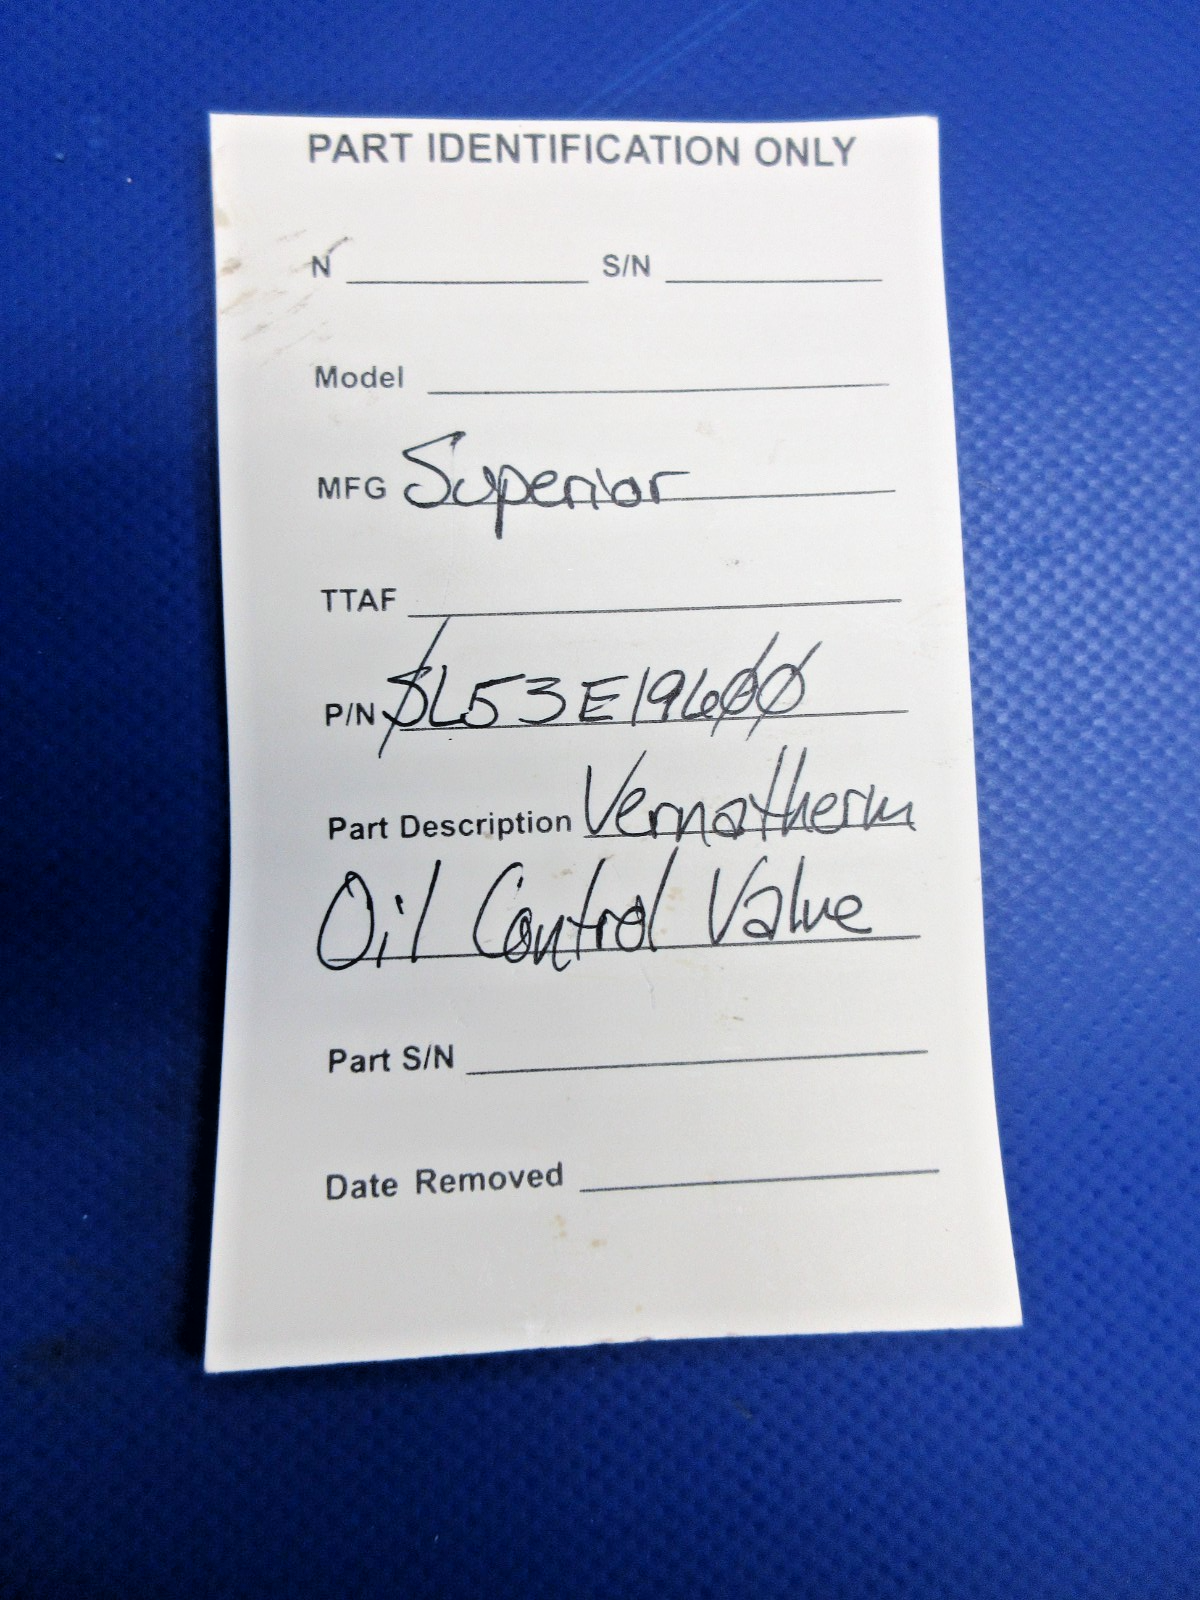 PART IDENTIFICATION ONLY
N S/N
Model
MFG Superior
TTAF
P/N SL53E19600
Part Description Vernatherm
Oil Control Valve
Part S/N
Date Removed